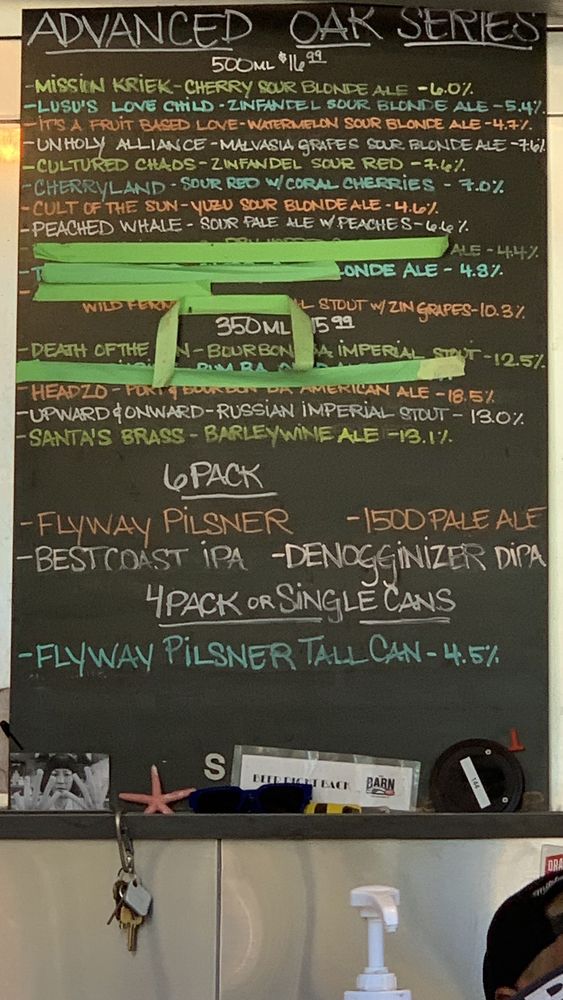 ADVANCED OAK SERIES
500ML $16.99
-MISSION KRIEK-CHERRY SOUR BLONDE ALE -6.0%
-LUSU'S LOVE CHILD-ZINFANDEL SOUR BLONDE ALE -5.4%
-IT'S A FRUIT BASED LOVE-WATERMELON SOUR BLONDE ALE-4.7%
-UNHOLY ALLIANCE-MALVASIA GRAPES SOUR BLONDE ALE-7.6%
-CULTURED CHAOS-ZINFANDEL SOUR RED -7.6%
-CHERRYLAND-SOUR RED W/CORAL CHERRIES - 7.0%
-CULT OF THE SUN-YUZU SOUR BLONDE ALE-4.6%
-PEACHED WHALE - SOUR PALE ALE W/PEACHES-6.6%
ALE -4.4%
ONDE ALE - 4.8%
WILD FERM L STOUT W/ZIN GRAPES-10.3%
350ML 15.99
-DEATH OF THE N-BOURBON BA IMPERIAL STOUT -12.5%
-HEADZO - PORT & BOURBON BA AMERICAN ALE -18.5%
-UPWARD & ONWARD-RUSSIAN IMPERIAL STOUT - 13.0%
-SANTA'S BRASS - BARLEYWINE ALE -13.1%
6 PACK
-FLYWAY PILSNER -1500 PALE ALE
-BESTCOAST IPA -DENOGGINIZER DIPA
4PACK OR SINGLE CANS
-FLYWAY PILSNER TALL CAN-4.5%
S
BEER RIGHT BACK BARN
DRA